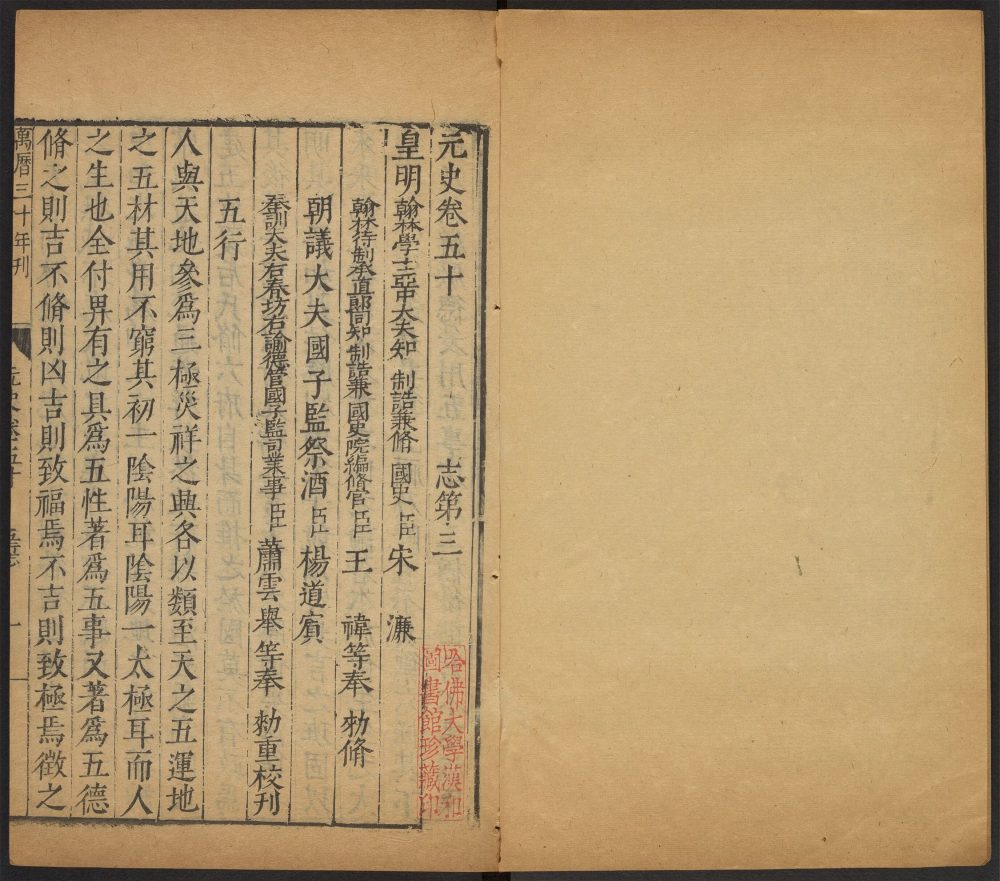 元史卷五十 志第三
皇明翰林學士亞中大夫知 制誥兼脩 國史 臣 宋 濂
翰林待制承直郎同知 制誥兼 國史院編脩官 臣 王 禕等奉 勑脩
朝議大夫國子監祭酒 臣 楊道賓
奉訓大夫右春坊右諭德管國子監司業事 臣 蕭雲舉等奉 勑重校刊
五行
人與天地參爲三極災祥之興各以類至天之五運地
之五材其用不窮其初一陰陽耳陰陽一太極耳而人
之生也全付畀有之具爲五性著爲五事又著爲五德
脩之則吉不脩則凶吉則致福焉不吉則致極焉徵之
萬曆三十年刊
元史卷五十
一
哈佛大學漢和
圖書館珍藏印